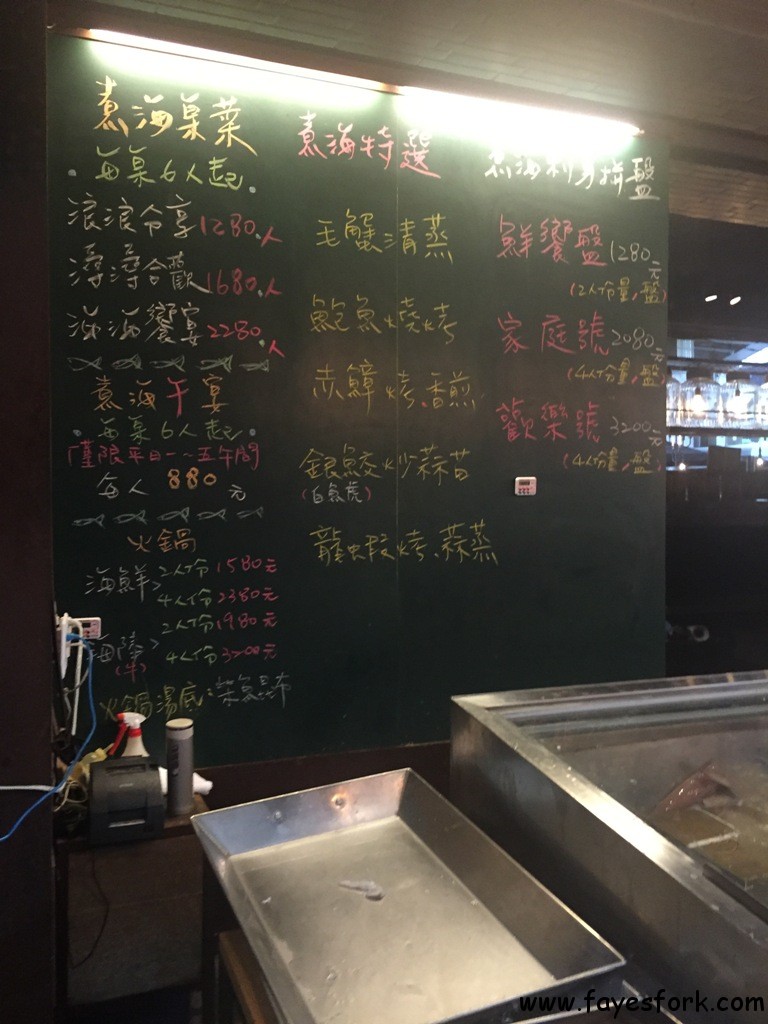 煮海桌菜
每桌6人起
浪浪分享1280.人
潯潯合歡1680.人
海海饗宴2280.人
煮海午宴
每桌6人起
僅限平日一~五午間
每人 880 元
火鍋
海鮮> 2人份 1580元
4人份 2380元
海陸> 2人份 1980元
(牛) 4人份 3200元
火鍋湯底:柴魚昆布
煮海特選
毛蟹清蒸
鮑魚燒烤
赤鯮烤.香煎
銀鮫炒蒜苗
(白鬼虎)
龍蝦烤.蒜蒸
煮海刺身拼盤
鮮饗盤1280元
(2人份量,盤)
家庭號2080元
(4人份量,盤)
歡樂號3200元
(4人份量,盤)
www.fayesfork.com